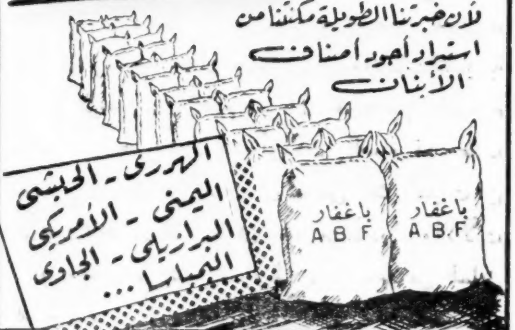 لأن خبرتنا الطويلة مكنتنا من
استيراد أجود أصناف
الأبنان
الهررى - الحبشى
اليمنى - الأمريكى
البرازيلى - الجاوى
الممباسا ...
باغفار
A B F
باغفار
A.B.F